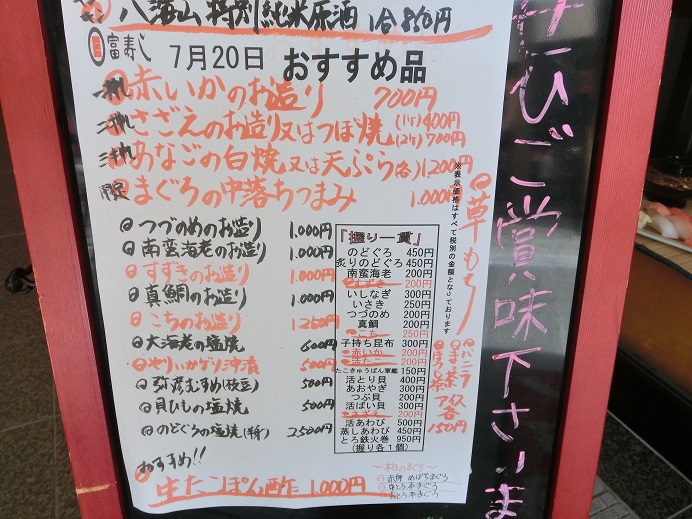 八海山特別純米原酒 1合850円
富寿し
7月20日 おすすめ品
赤いかのお造り 700円
さざえのお造り又はつぼ焼 (1ケ)400円
(2ケ)700円
あなごの白焼又は天ぷら(各)1,200円
限定 まぐろの中落ちつまみ 1,000円
つづのめのお造り 1,000円
南蛮海老のお造り 1,000円
すずきのお造り 1,000円
真鯛のお造り 1,000円
こちのお造り 1,250円
大海老の塩焼 600円
やりいかゲソ沖漬 500円
弥彦むすめ(枝豆) 500円
貝ひもの塩焼 500円
のどぐろの塩焼(半身) 2,500円
おすすめ!!
生たこぽん酢 1,000円
『握り一貫』
のどぐろ 450円
炙りのどぐろ 450円
南蛮海老 200円
すずき 200円
いしなぎ 300円
いさき 250円
つづのめ 200円
真鯛 200円
こち 250円
子持ち昆布 300円
赤いか 200円
生たこ 200円
たこきゅうばん軍艦 150円
活とり貝 400円
あおやぎ 300円
つぶ貝 200円
活ばい貝 300円
さざえ 200円
活あわび 500円
蒸しあわび 450円
とろ鉄火巻 950円
(握り各1個)
※表示価格はすべて税別の金額となっております
草もち
バニラ
抹茶
ほうじ茶
アイス
各150円
〜本日のまぐろ〜
赤身 めばちまぐろ
中とろ 本まぐろ
大とろ 本まぐろ
ぜひご賞味下さいま